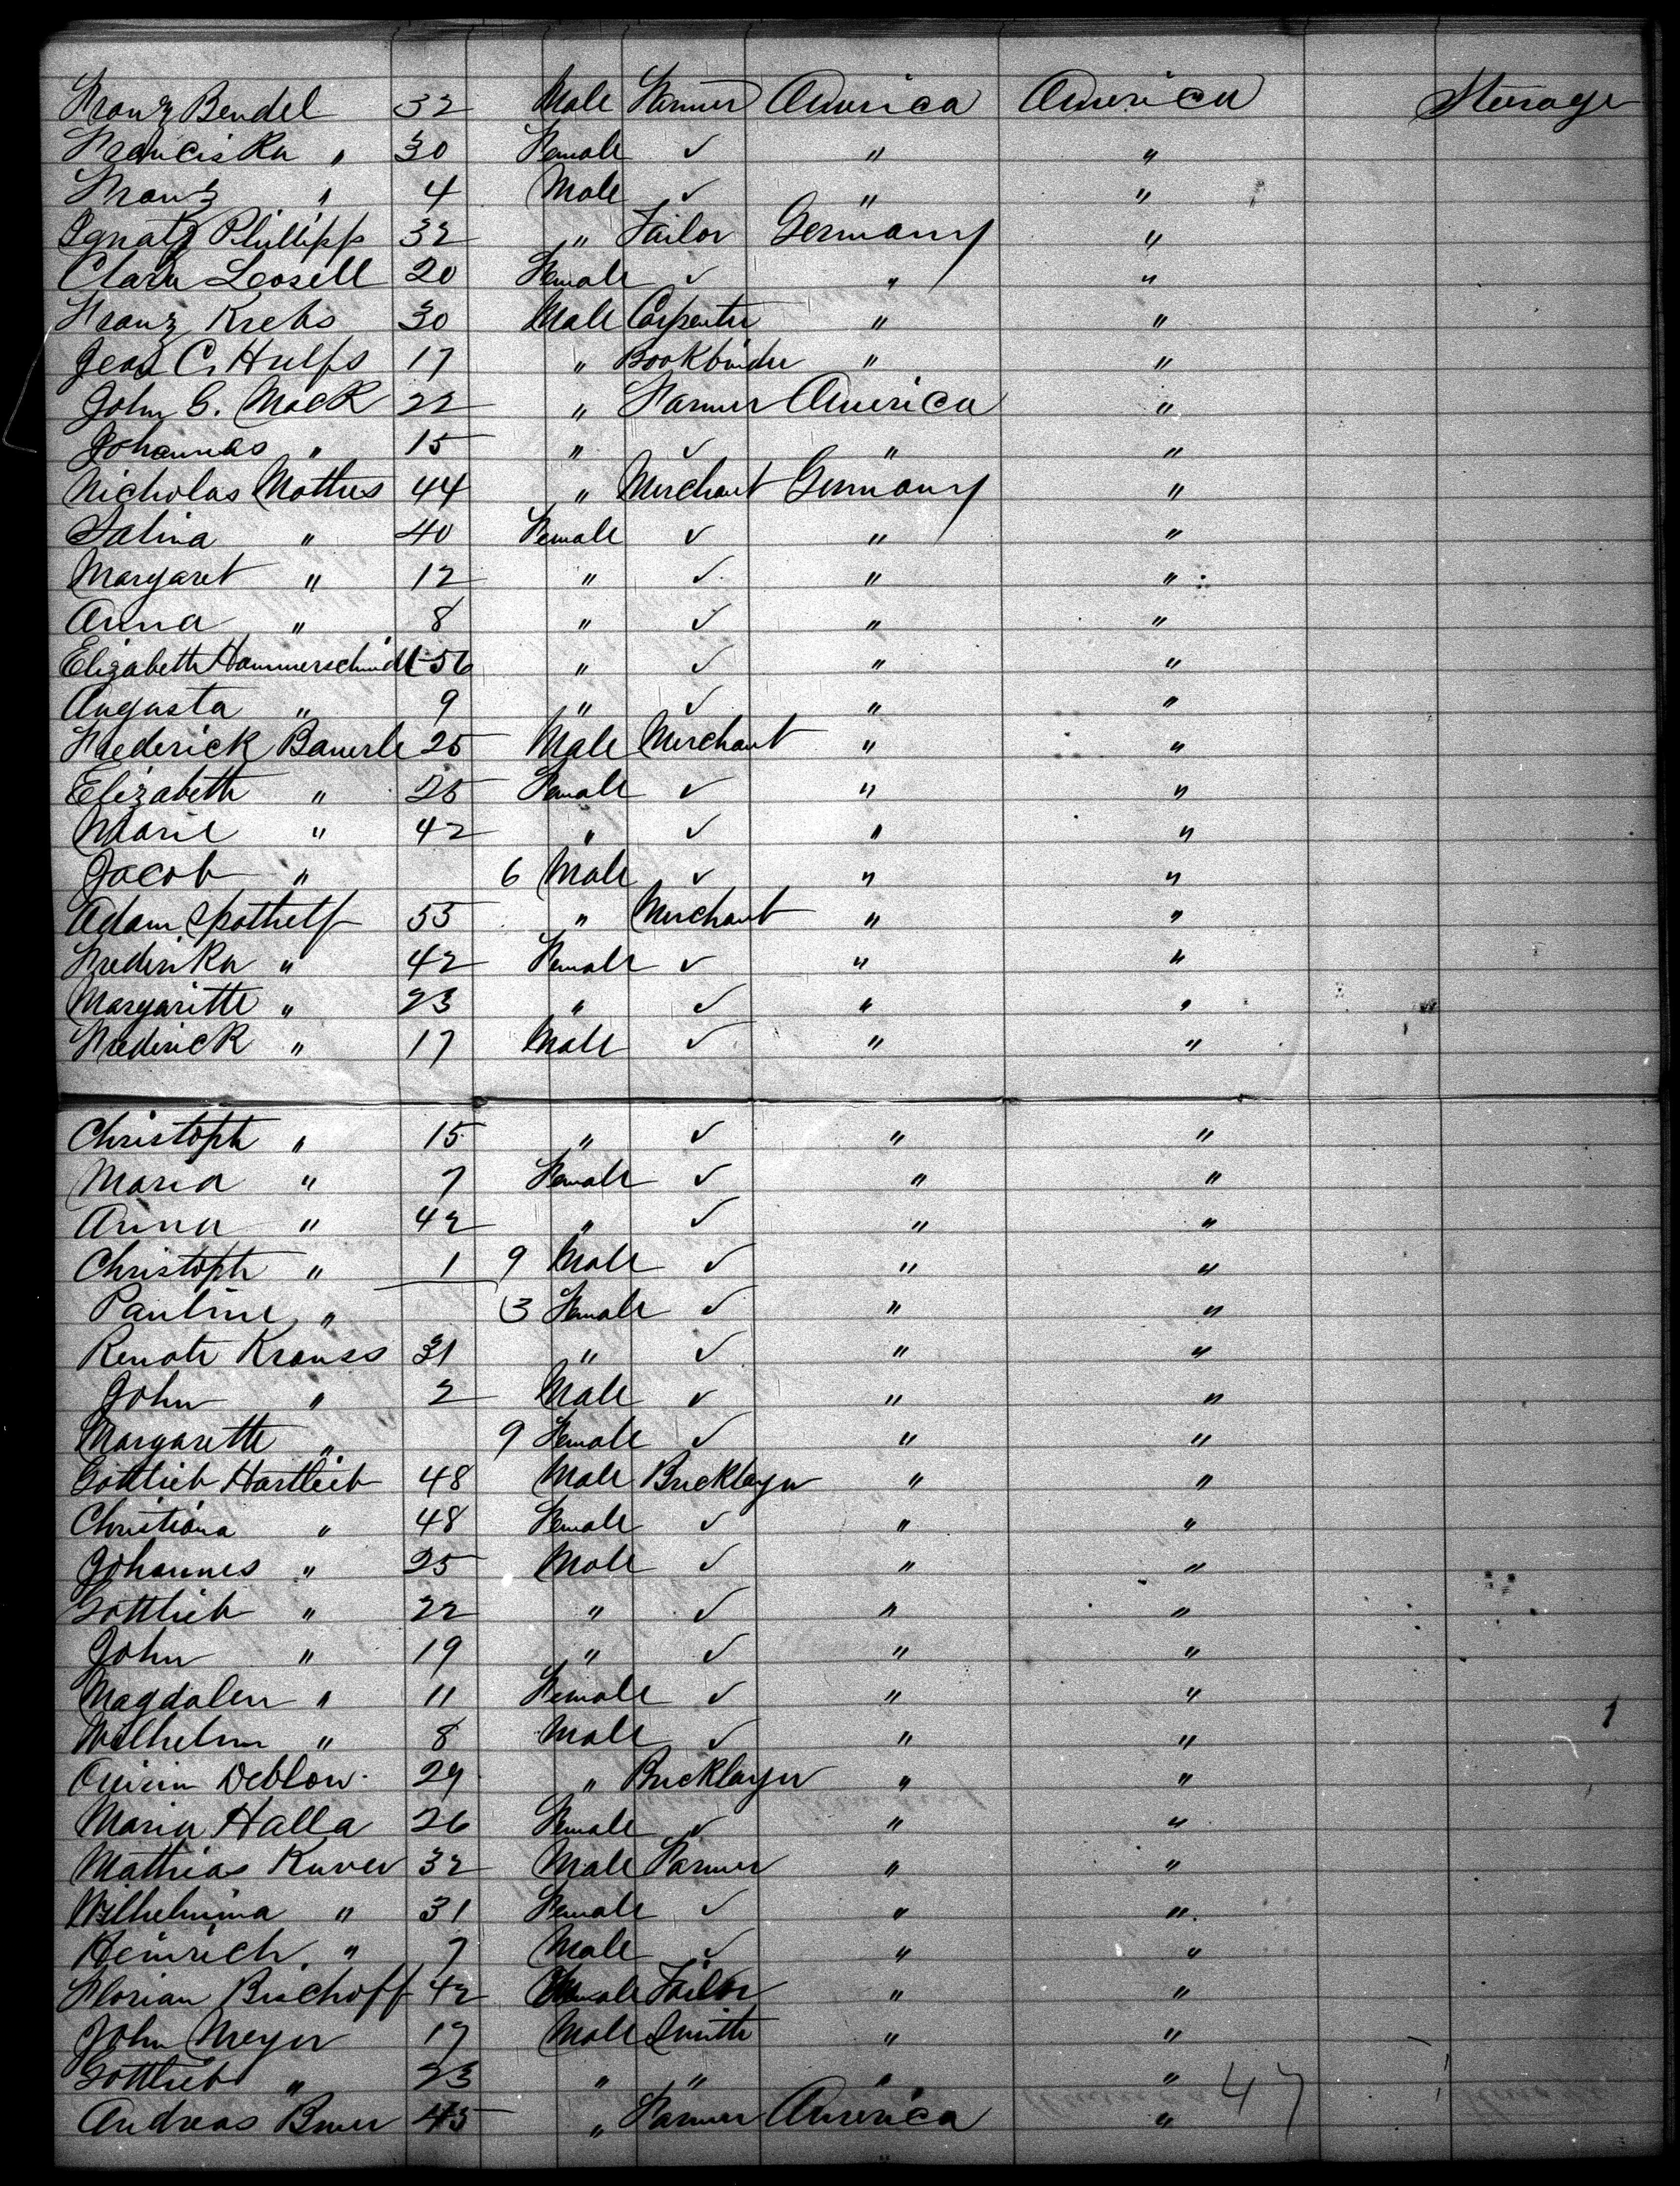 Franz Bendel 32 Male Farmer America America Steerage
Franciska " 30 Female ✓ " "
Franz " 4 Male ✓ " "
Ignatz Phillipps 32 " Tailor Germany "
Clara Leosell 20 Female ✓ " "
Franz Krebs 30 Male Carpenter " "
Jean C. Hulfs 17 " Bookbinder " "
John G. Mack 22 " Farmer America "
Johannes " 15 " ✓ " "
Nicholas Mathes 44 " Merchant Germany "
Salina " 40 Female ✓ " "
Margaret " 12 " ✓ " "
Anna " 8 " ✓ " "
Elizabeth Hammerschmidt 56 " ✓ " "
Augusta " 9 " ✓ " "
Frederick Bauerle 25 Male Merchant " "
Elizabeth " 25 Female ✓ " "
Marie " 42 " ✓ " "
Jacob " 6 Male ✓ " "
Adam Spathelf 55 " Merchant " "
Frederika " 42 Female ✓ " "
Margaritte " 23 " ✓ " "
Frederick " 17 Male ✓ " "
Christoph " 15 " ✓ " "
Maria " 7 Female ✓ " "
Anna " 42 " ✓ " "
Christoph " 1 9 Male ✓ " "
Pauline " 3 Female ✓ " "
Renate Krauss 31 " ✓ " "
John " 2 Male ✓ " "
Margarette " 9 Female ✓ " "
Gottlieb Hartlieb 48 Male Bricklayer " "
Christiana " 48 Female ✓ " "
Johannes " 25 Male ✓ " "
Gottlieb " 22 " ✓ " "
John " 19 " ✓ " "
Magdalen " 11 Female ✓ " "
Wilhelm " 8 Male ✓ " "
Deblow 29 " Bricklayer " "
Maria Halla 26 Female ✓ " "
Mathias Kuver 32 Male Farmer " "
Wilhelmina " 31 Female ✓ " "
Heinrich " 7 Male ✓ " "
Florian Bischoff 42 Male Tailor " "
John Meyer 17 Male Smith " "
Gottlieb " 23 " " " " 47
Andreas 45 " Farmer America "